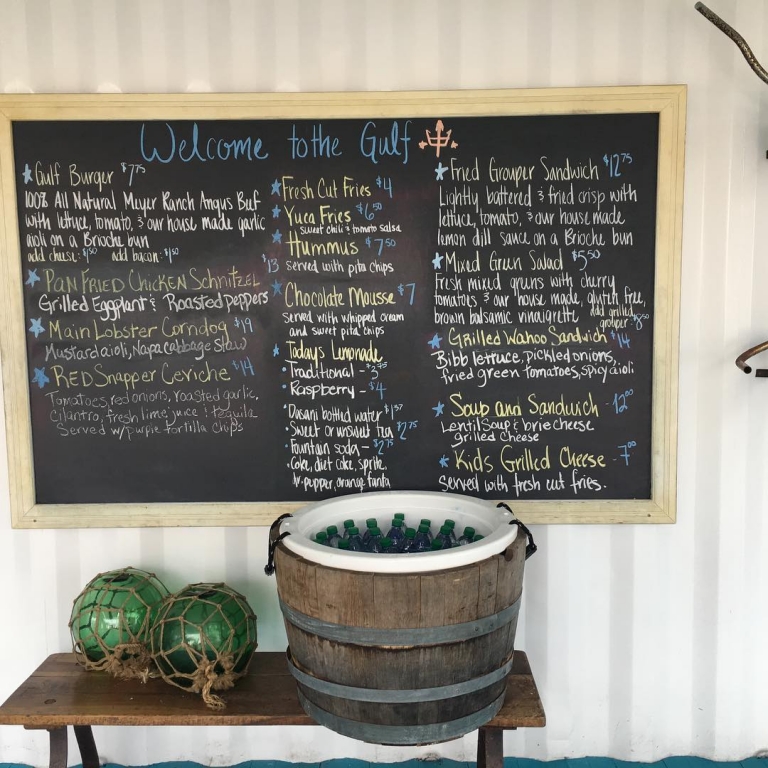 Welcome to the Gulf
Gulf Burger $7.75
100% All Natural Meyer Ranch Angus Beef
with lettuce, tomato, & our house made garlic
aioli on a Brioche bun
add cheese: $.50 add bacon: $1.50
$13
Pan Fried Chicken Schnitzel
Grilled Eggplant & Roasted peppers
Main Lobster Corndog $19
Mustard aioli, Napa cabbage Slaw
Red Snapper Ceviche $14
Tomatoes, red onions, roasted garlic,
Cilantro, fresh lime juice & tequila
Served w/purple tortilla chips
Fresh Cut Fries $4
Yuca Fries $6.50
sweet chili & tomato salsa
Hummus $7.50
served with pita chips
Chocolate Mousse $7
served with whipped cream
and sweet pita chips
Today's Lemonade
• Traditional - $3.75
• Raspberry - $4
• Dasani bottled water $1.37
• Sweet or unsweet Tea $2.75
• Fountain soda - $2.75
• Coke, diet coke, sprite
dr. pepper, orange fanta
Fried Grouper Sandwich $12.75
Lightly battered & fried crisp with
lettuce, tomato, & our house made
lemon dill sauce on a Brioche bun
Mixed Green Salad $5.50
Fresh mixed greens with cherry
tomatoes & our house made, gluten free,
brown balsamic vinaigrette add grilled
grouper 8.50
Grilled Wahoo Sandwich $14
Bibb lettuce, pickled onions,
fried green tomatoes, spicy aioli
Soup and Sandwich - 12.00
Lentil Soup & brie cheese
grilled cheese
Kids Grilled Cheese - 7.00
Served with fresh cut fries.